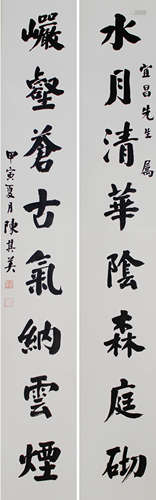 水月清華陰森庭砌
宜昌先生屬
巗壑蒼古氣納雲煙
甲寅夏月陳其美